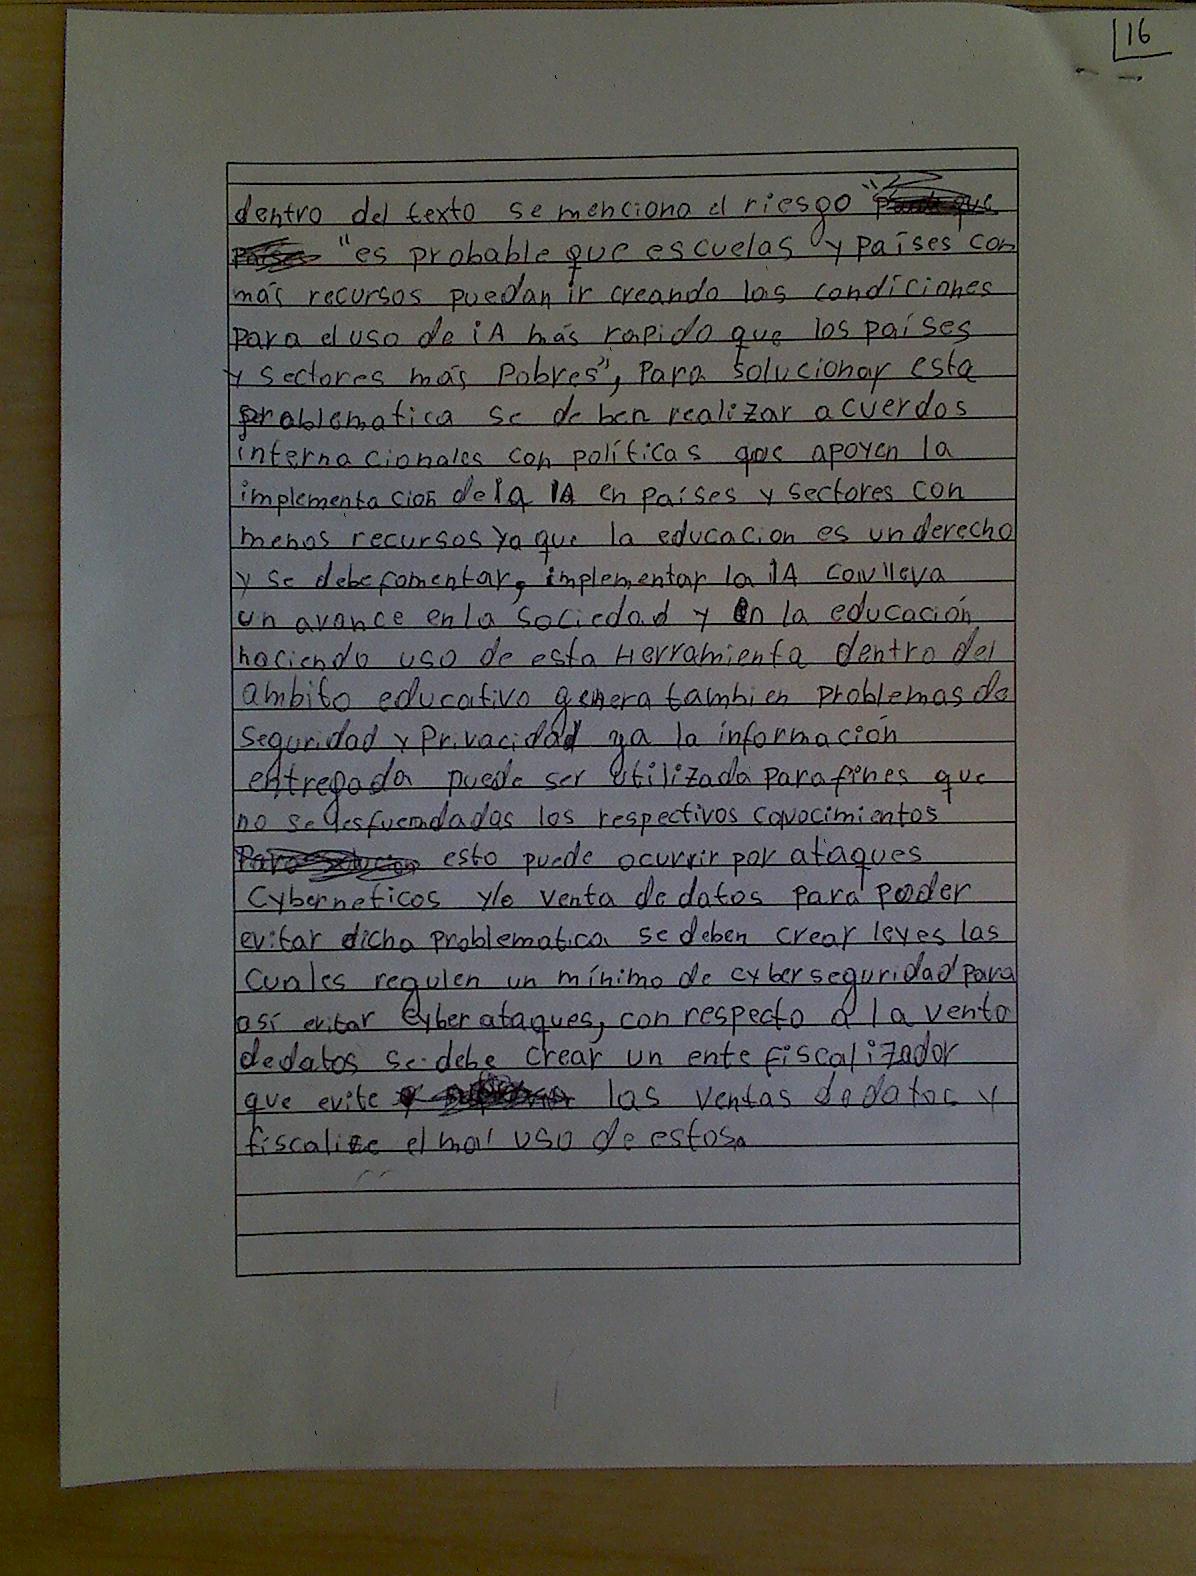 16
dentro del texto se menciona el riesgo "
"es probable que escuelas y países con
más recursos puedan ir creando las condiciones
para el uso de iA más rapido que los países
y sectores más Pobres", Para solucionar esta
problematica se deben realizar acuerdos
internacionales con políticas que apoyen la
implementacion de la IA en países y sectores con
menos recursos ya que la educacion es un derecho
y se debe fomentar, implementar la IA conlleva
un avance en la sociedad y en la educación,
haciendo uso de esta Herramienta dentro del
ambito educativo genera tambien problemas de
seguridad y Privacidad ya la información
entregada puede ser utilizada para fines que
no se los respectivos conocimientos
esto puede ocurrir por ataques
Cyberneticos y/o venta de datos para poder
evitar dicha problematica se deben crear leyes las
cuales regulen un mínimo de cyberseguridad para
así evitar Cyber ataques, con respecto a la venta
de datos se debe crear un ente fiscalizador
que evite las ventas de datos y
fiscalize el mal uso de estos.